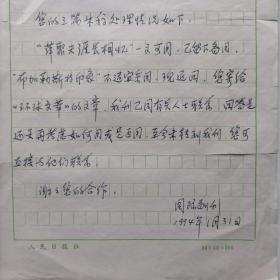 您的三篇来稿处理情况如下：
"萍聚天涯长相忆"一文可用，已留下备用，
"布加勒斯特印象"不适宜采用，现退回，您寄给
《环球文萃》的文章，我们已同有关人士联系，回答是
还要再考虑如何用或是否用，至今未转到我们，您可
直接与他们联系。
谢谢您的合作。
国际副刊
1994年1月31日
人民日报社